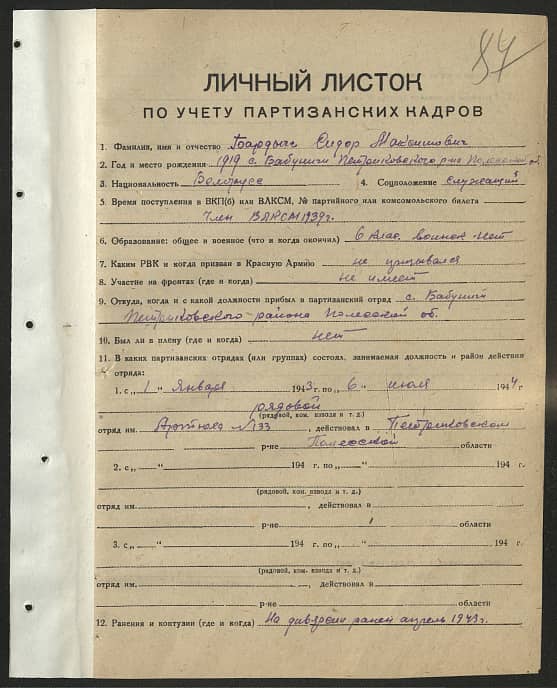 84
ЛИЧНЫЙ ЛИСТОК
ПО УЧЕТУ ПАРТИЗАНСКИХ КАДРОВ
1. Фамилия, имя и отчество Бардыш Сидор Максимович
2. Год и место рождения 1919 с. Бабуничи Петриковского р-на Полесской об.
3. Национальность Белорусс 4. Соцположение служащий
5. Время поступления в ВКП(б) или ВЛКСМ, № партийного или комсомольского билета
Член ВЛКСМ 1937г.
6. Образование: общее и военное (что и когда окончил) 6 клас. военное нет
7. Каким РВК и когда призван в Красную Армию не призывался
8. Участие на фронтах (где и когда) не имеет
9. Откуда, когда и с какой должности прибыл в партизанский отряд с. Бабуничи
Петриковского района Полесской об.
10. Был ли в плену (где и когда) нет
11. В каких партизанских отрядах (или группах) состоял, занимаемая должность и район действия
отряда:
1. с „ 1 “ Января 1943 г. по „ 6 “ июля 1944 г
рядовой
(рядовой, ком. взвода и т. д.)
отряд им. №133, действовал в Петриковском
р-не Полесской области
2. с „ “ 194 г. по „ “ 194 г.
(рядовой, ком. взвода и т. д.)
отряд им. , действовал в
р-не области
3. с „ “ 194 г. по „ “ 194 г.
(рядовой, ком. взвода и т. д.)
отряд им. , действовал в
р-не области
12. Ранения и контузии (где и когда) ранен апрель 1943г.